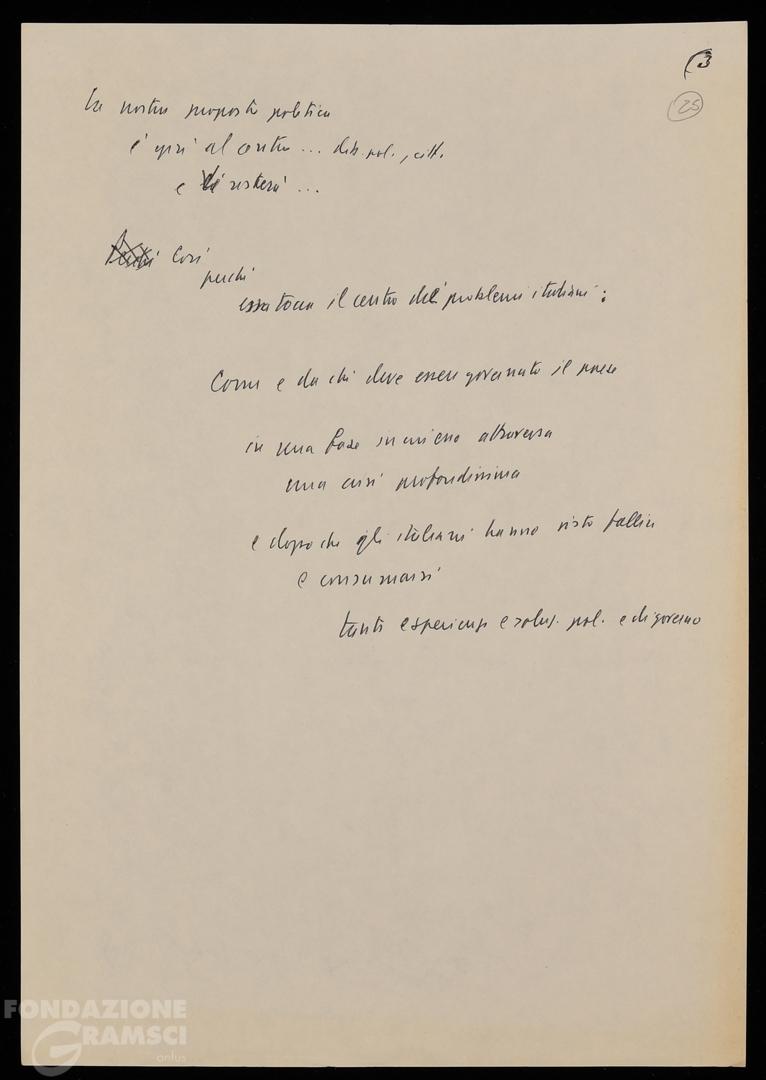 (3
25
La nostra proposta politica
è già al centro ... dib. pol.,
e lì resterà ...
Perché Così
perché
essa tocca il centro dei problemi italiani:
Come e da chi deve essere governato il paese
in una fase in cui esso attraversa
una crisi profondissima
e dopo che gli italiani hanno visto fallire
e consumarsi
tante esperienze e soluz. pol. e di governo
FONDAZIONE
GRAMSCI
onlus